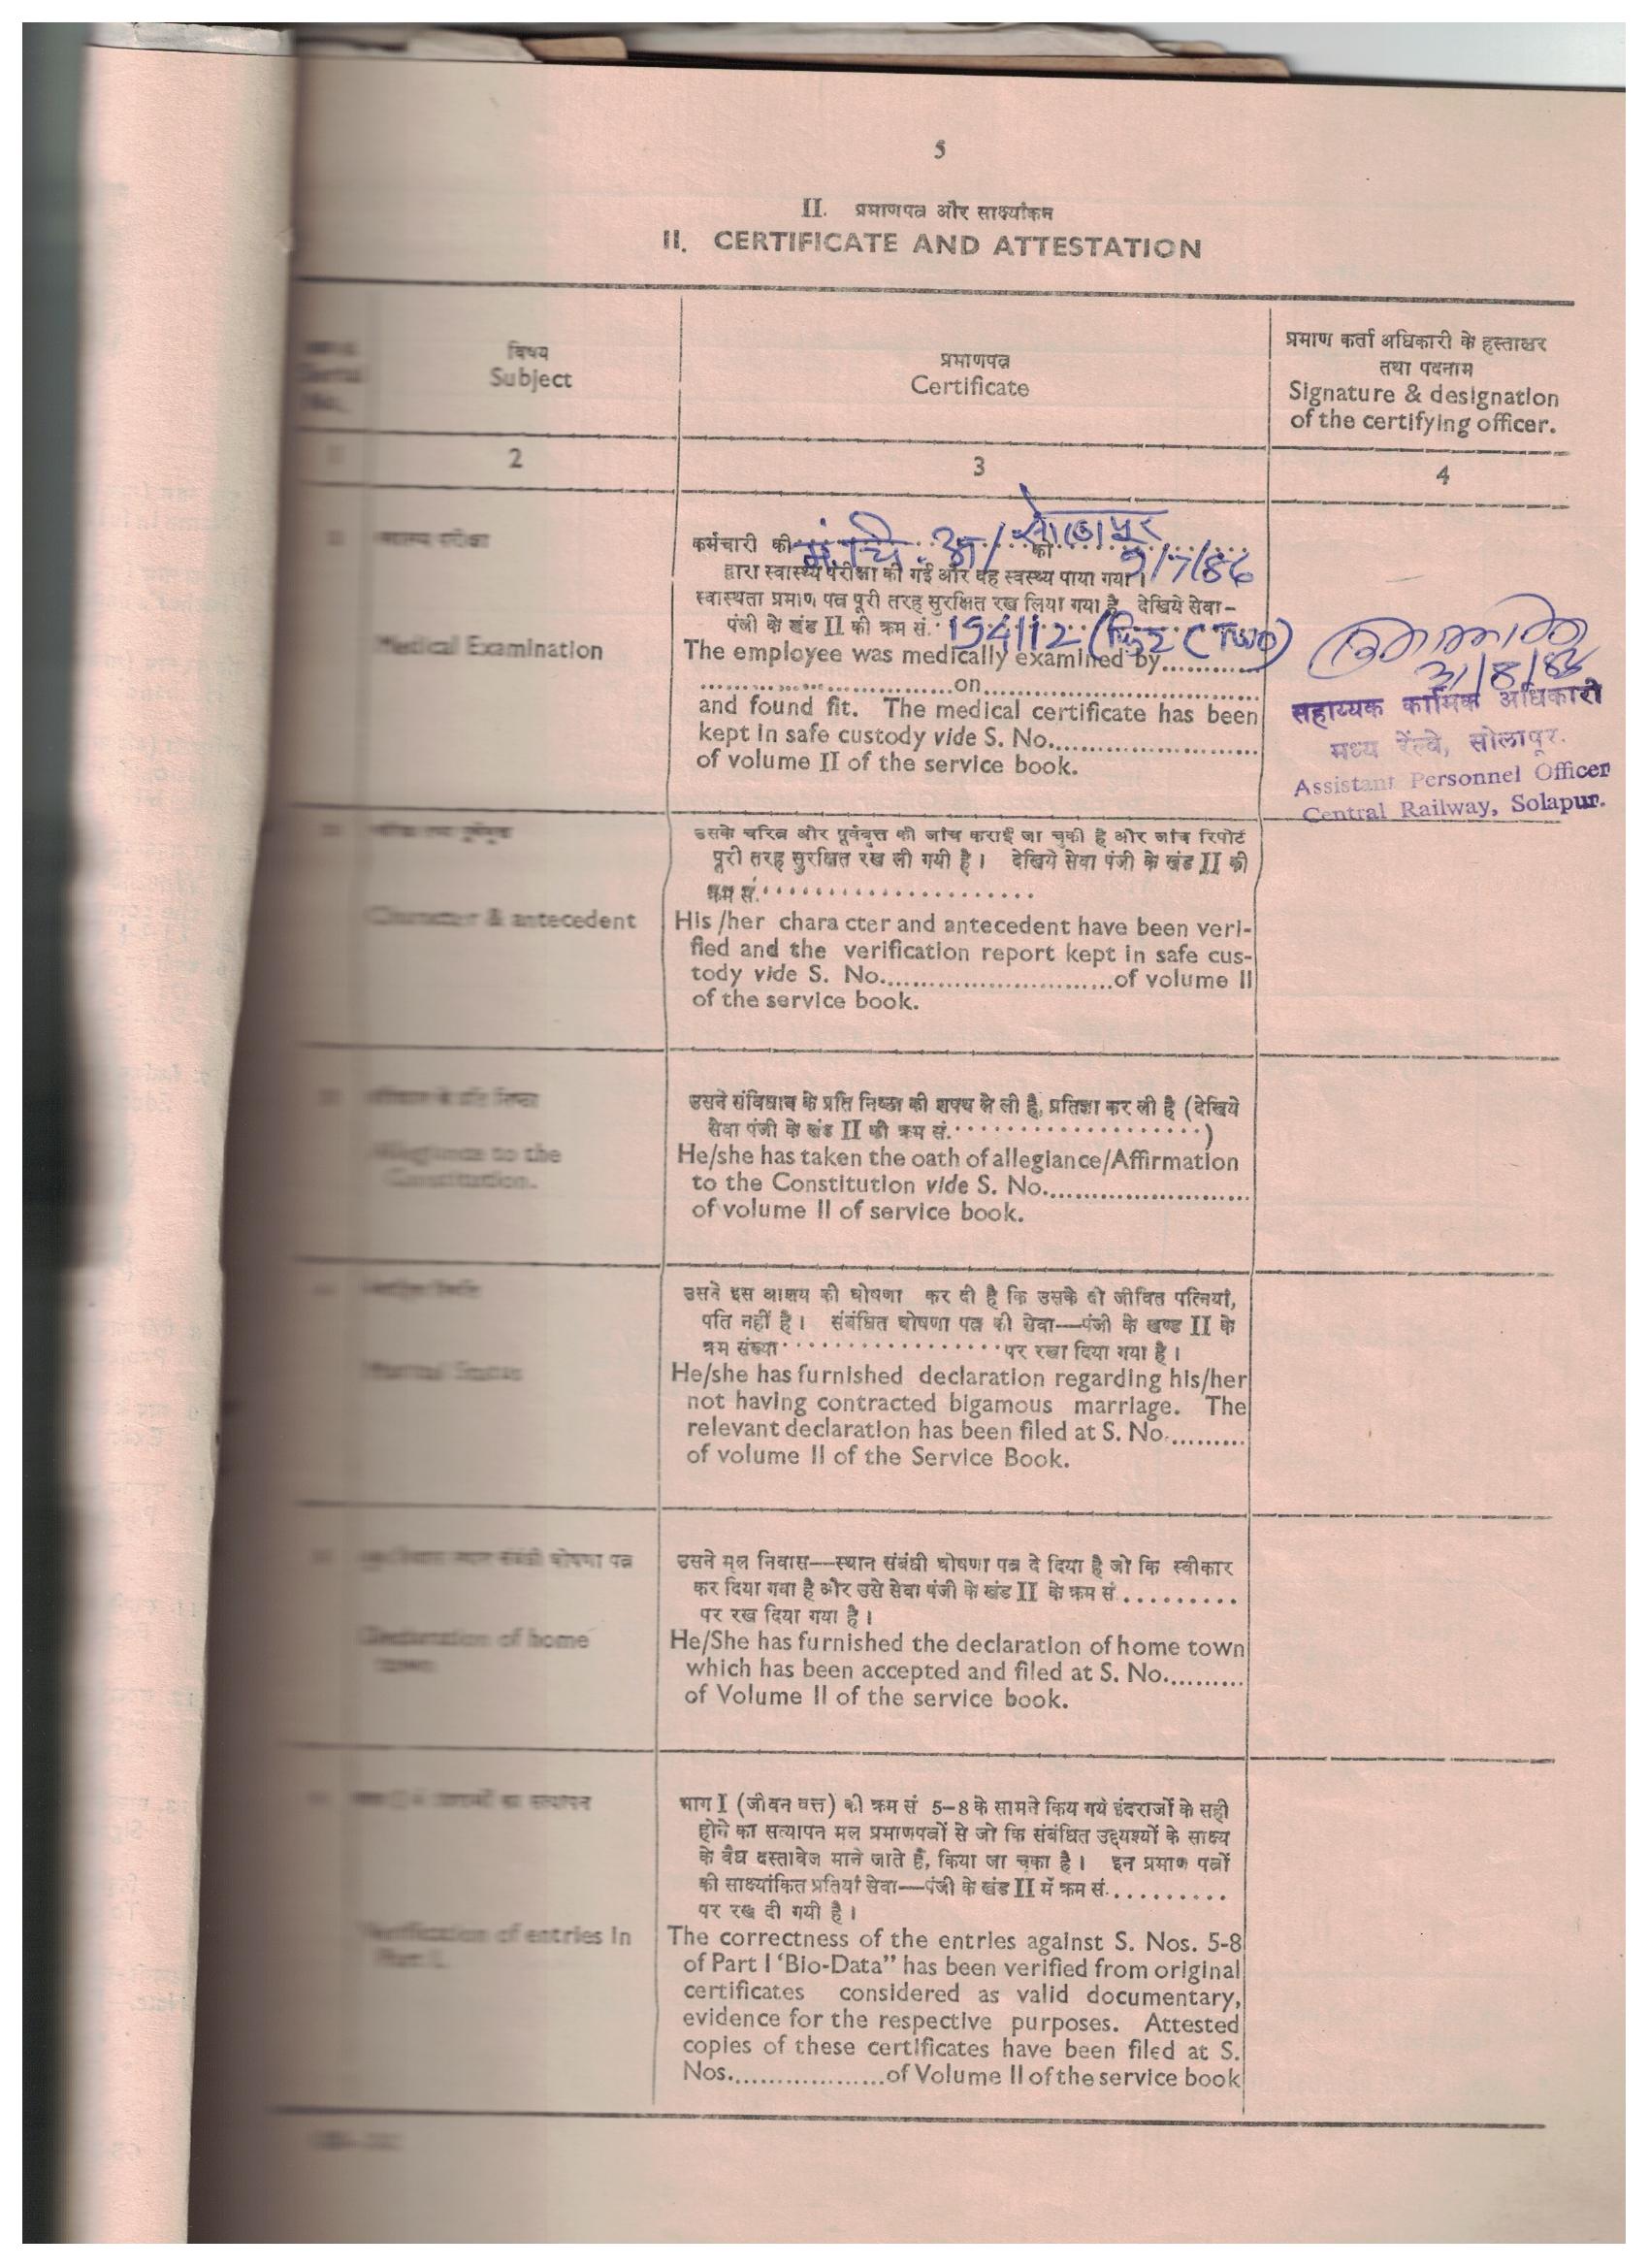 5
II. प्रमाणपत्र और साक्ष्यांकन
II. CERTIFICATE AND ATTESTATION
विषय
Subject
प्रमाणपत्र
Certificate
प्रमाण कर्ता अधिकारी के हस्ताक्षर
तथा पदनाम
Signature & designation
of the certifying officer.
2
3
4
स्वास्थ्य परीक्षा
Medical Examination
कर्मचारी की मं. चि. अ / सोलापूर को
द्वारा स्वास्थ्य परीक्षा की गई और वह स्वस्थ्य पाया गया। 9/7/86
स्वास्थता प्रमाण पत्र पूरी तरह सुरक्षित रख लिया गया है देखिये सेवा-
पंजी के खंड II की क्रम सं. 154112 (फिट 2 (TWO)
The employee was medically examined by............
....................on....................
and found fit. The medical certificate has been
kept in safe custody vide S. No..............
of volume II of the service book.
31/8/86
सहाय्यक कार्मिक अधिकारी
मध्य रेल्वे, सोलापूर.
Assistant Personnel Officer
Central Railway, Solapur.
Character & antecedent
उसके चरित्र और पूर्ववृत्त की जांच कराई जा चुकी है और जांच रिपोर्ट
पूरी तरह सुरक्षित रख ली गयी है। देखिये सेवा पंजी के खंड II की
क्रम सं...............
His /her chara cter and antecedent have been veri-
fied and the verification report kept in safe cus-
tody vide S. No..............of volume II
of the service book.
Allegiance to the
Constitution.
उसने संविधान के प्रति निष्ठा की शपथ ले ली है, प्रतिज्ञा कर ली है (देखिये
सेवा पंजी के खंड II की क्रम सं...............)
He/she has taken the oath of allegiance/Affirmation
to the Constitution vide S. No..............
of volume II of service book.
Marital Status
उसने इस आशय की घोषणा कर दी है कि उसके दो जीवित पत्नियां,
पति नहीं है। संबंधित घोषणा पत्र की सेवा—पंजी के खण्ड II के
क्रम संख्या..................पर रखा दिया गया है।
He/she has furnished declaration regarding his/her
not having contracted bigamous marriage. The
relevant declaration has been filed at S. No..........
of volume II of the Service Book.
Declaration of home
town
उसने मूल निवास—स्थान संबंधी घोषणा पत्र दे दिया है जो कि स्वीकार
कर दिया गया है और उसे सेवा पंजी के खंड II के क्रम सं..........
पर रख दिया गया है।
He/She has furnished the declaration of home town
which has been accepted and filed at S. No..........
of Volume II of the service book.
Verification of entries in
Part I.
भाग I (जीवन वृत्त) की क्रम सं 5-8 के सामने किय गये इंदराजों के सही
होने का सत्यापन मूल प्रमाणपत्रों से जो कि संबंधित उद्देश्यों के साक्ष्य
के वैध दस्तावेज माने जाते हैं, किया जा चुका है। इन प्रमाण पत्रों
की साक्ष्यांकित प्रतियां सेवा—पंजी के खंड II में क्रम सं...........
पर रख दी गयी है।
The correctness of the entries against S. Nos. 5-8
of Part I ‘Bio-Data” has been verified from original
certificates considered as valid documentary,
evidence for the respective purposes. Attested
copies of these certificates have been filed at S.
Nos...................of Volume II of the service book